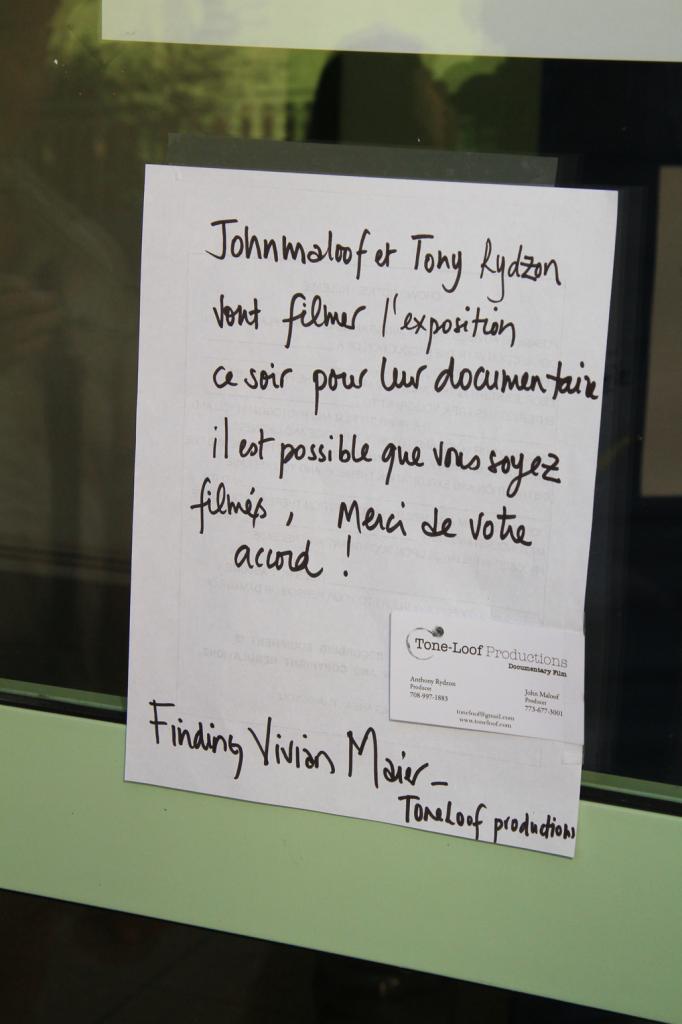 Johnmaloof et Tony Rydzon
vont filmer l'exposition
ce soir pour leur documentaire
il est possible que vous soyez
filmés, Merci de votre
accord !
Tone-Loof Productions
Documentary Film
Anthony Rydzon
Producer
708-997-1883
John Maloof
Producer
773-677-3001
toneloof@gmail.com
www.toneloof.com
Finding Vivian Maier_
ToneLoof productions